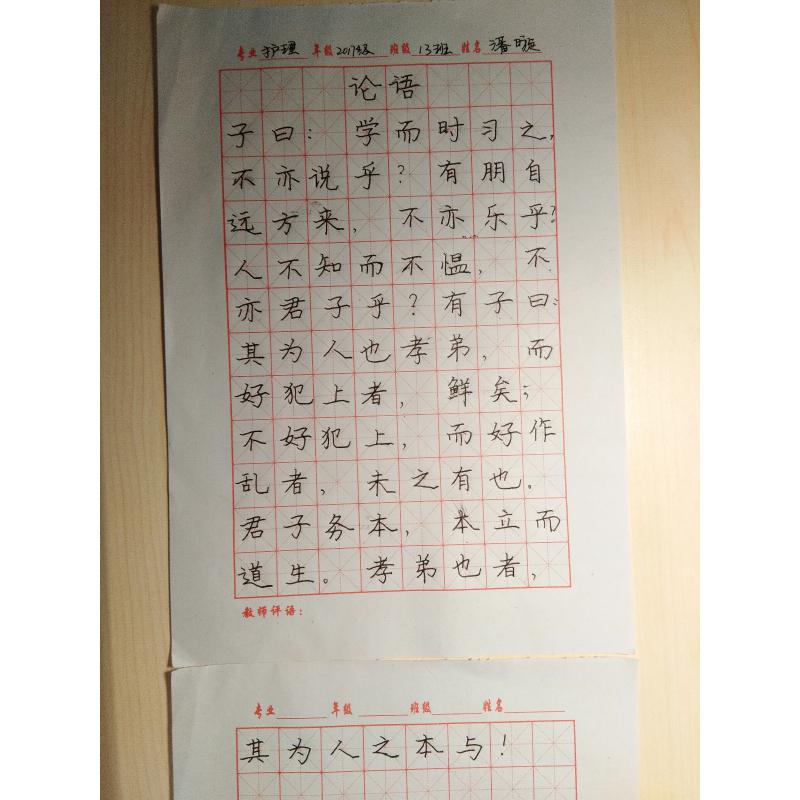 专业 护理 年级 2017级 班级 13班 姓名 潘旋
论语
子曰：学而时习之，
不亦说乎？有朋自
远方来，不亦乐乎？
人不知而不愠，不
亦君子乎？有子曰：
其为人也孝弟，而
好犯上者，鲜矣；
不好犯上，而好作
乱者，未之有也。
君子务本，本立而
道生。孝弟也者，
教师评语：
专业 年级 班级 姓名
其为人之本与！